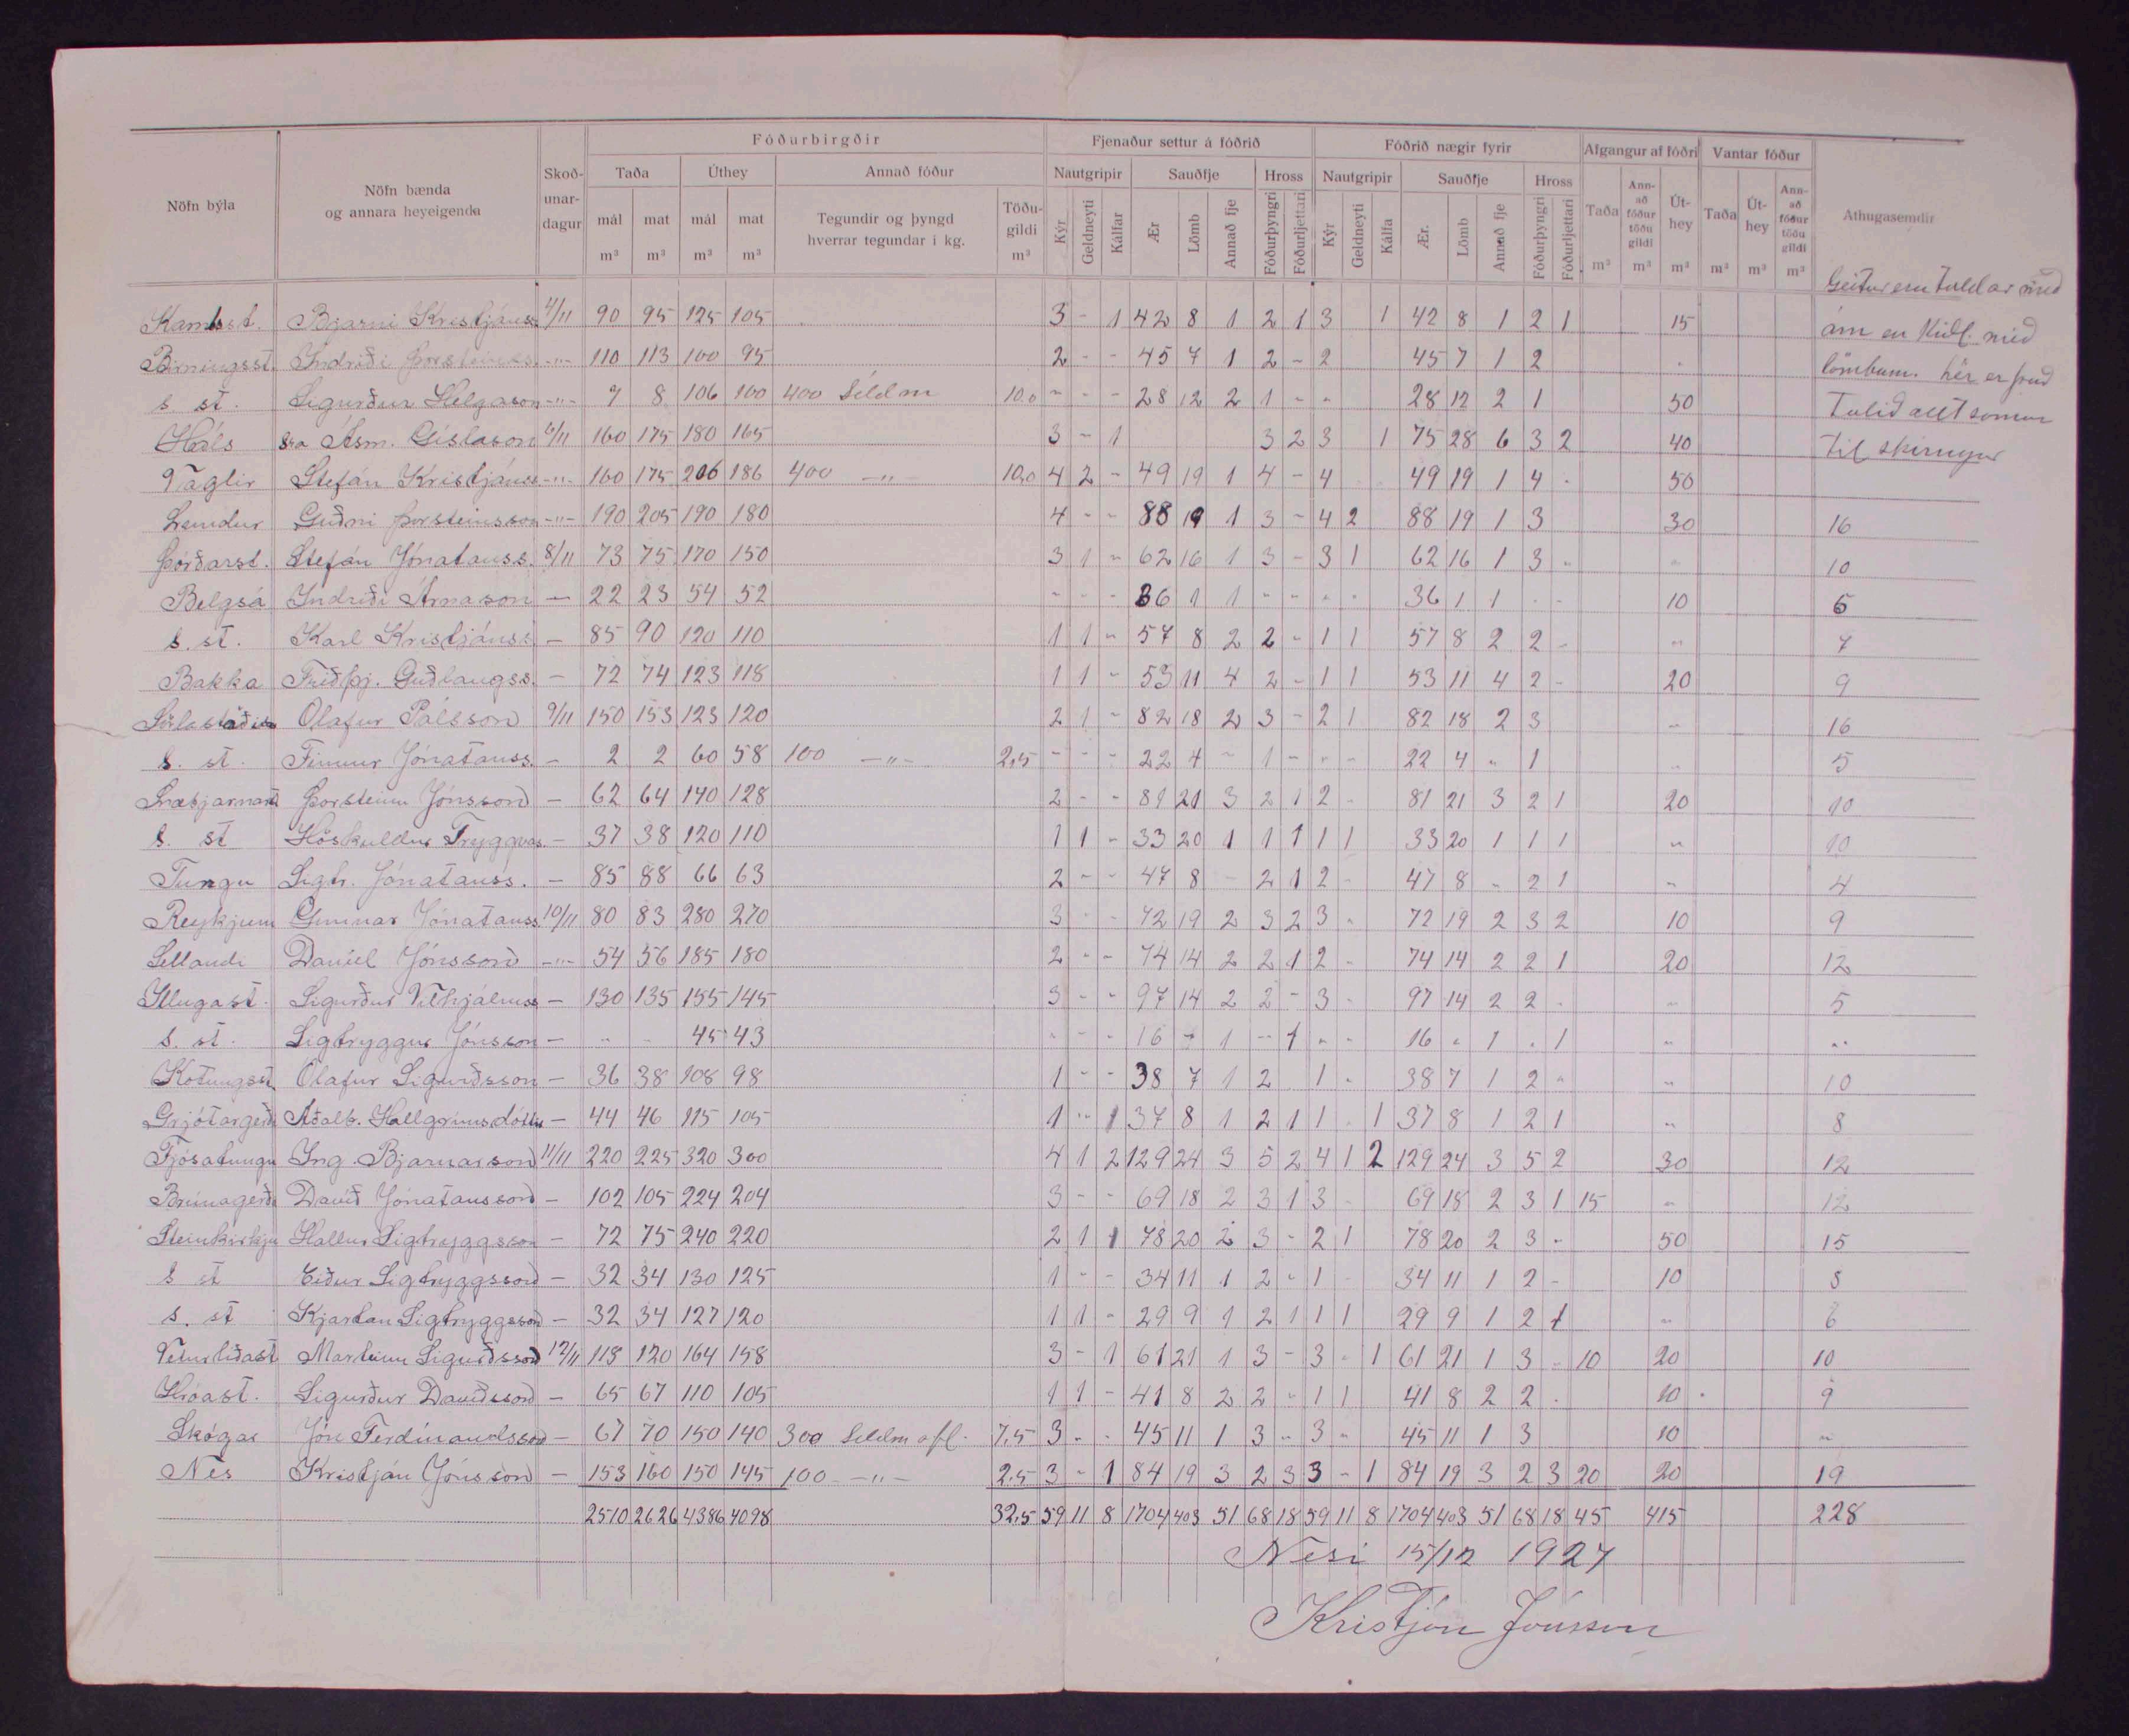 Fóðurbirgðir Fjenaður settur á fóðrið Fóðrið nægir fyrir Afgangur af fóðri Vantar fóður
Nöfn býla Nöfn bænda og annara heyeigenda Skoð-unar-dagur Taða Úthey Annað fóður Nautgripir Sauðfje Hross Nautgripir Sauðfje Hross Taða Ann-að fóður töðu gildi Út-hey Taða Út-hey Ann-að fóður töðu gildi Athugasemdir
mál m³ mat m³ mál m³ mat m³ Tegundir og þyngd hverrar tegundar í kg. Töðu-gildi m³ Kýr Geldneyti Kálfar Ær Lömb Annað fje Fóðurþyngri Fóðurljettari Kýr Geldneyti Kálfa Ær. Lömb Annað fje Fóðurþyngri Fóðurljettari m³ m³ m³ m³ m³ m³
Geitur eru taldar með
Kambst. Bjarni Kristjánss 4/11 90 95 125 105 3 - 1 42 8 1 2 1 3 1 42 8 1 2 1 15 ám en kiðl. með
Birningsst. Indriði Þorsteinss. -"- 110 113 100 95 2 - - 45 7 1 2 - 2 45 7 1 2 lömbum. hér er það
s. st. Sigurður Helgason -"- 7 8 106 100 400 Síldm 10.0 - - - 28 12 2 1 - - 28 12 2 1 50 Talið allt saman
Háls sra Ásm. Gíslason 6/11 160 175 180 165 3 - 1 3 2 3 1 75 28 6 3 2 40 til skiringar
Vaglir Stefán Kristjánss -"- 160 175 206 186 400 -"- 10,0 4 2 - 49 19 1 4 - 4 49 19 1 4 - 50
Lundur Guðni Þorsteinsson -"- 190 205 190 180 4 - - 88 19 1 3 - 4 2 88 19 1 3 30 16
Þórðarst. Stefán Jónatanss. 8/11 73 75 170 150 3 1 - 62 16 1 3 - 3 1 62 16 1 3 - " 10
Belgsá Indriði Árnason - 22 23 54 52 - - - 36 1 1 - - - - 36 1 1 - - 10 6
s. st. Karl Kristjánss - 85 90 120 110 1 1 - 57 8 2 2 - 1 1 57 8 2 2 - " 7
Bakka Friðþj. Guðlaugss. - 72 74 123 118 1 1 - 53 11 4 2 - 1 1 53 11 4 2 - 20 9
Sörlastöðum Ólafur Pálsson 9/11 150 153 123 120 2 1 - 82 18 2 3 - 2 1 82 18 2 3 " 16
s. st. Finnur Jónatanss. - 2 2 60 58 100 -"- 2,5 - - - 22 4 - 1 - - - 22 4 " 1 " 5
Snæbjarnarst Þorsteinn Jónsson - 62 64 140 128 2 - - 81 21 3 2 1 2 - 81 21 3 2 1 20 10
s. st Höskuldur Tryggvas. - 37 38 120 110 1 1 - 33 20 1 1 1 1 1 33 20 1 1 1 " 10
Tungu Sigtr. Jónatanss. - 85 88 66 63 2 - - 47 8 - 2 1 2 - 47 8 " 2 1 " 4
Reykjum Gunnar Jónatanss 10/11 80 83 280 270 3 - - 72 19 2 3 2 3 " 72 19 2 3 2 10 9
Sellandi Daníel Jónsson -"- 54 56 185 180 2 - - 74 14 2 2 1 2 - 74 14 2 2 1 20 12
Illugast. Sigurður Vilhjálmss - 130 135 155 145 3 - - 97 14 2 2 - 3 - 97 14 2 2 - " 5
s. st. Sigtryggur Jónsson - - - 45 43 - - - 16 - 1 - 1 - - 16 " 1 " 1 " "
Kotungsst. Ólafur Sigurðsson - 36 38 108 98 1 - - 38 7 1 2 1 - 38 7 1 2 " " 10
Grjótargerði Aðalb. Hallgrímsdóttir - 44 46 115 105 1 - 1 37 8 1 2 1 1 . 1 37 8 1 2 1 " 8
Fjósatungu Ing. Bjarnarson 11/11 220 225 320 300 4 1 2 129 24 3 5 2 4 1 2 129 24 3 5 2 30 12
Brúnagerði Davíð Jónatansson - 102 105 224 204 3 - - 69 18 2 3 1 3 - 69 18 2 3 1 15 " 12
Steinkirkju Hallur Sigtryggsson - 72 75 240 220 2 1 1 78 20 2 3 - 2 1 78 20 2 3 - 50 15
s st Eiður Sigtryggsson - 32 34 130 125 1 - - 34 11 1 2 - 1 - 34 11 1 2 - 10 8
s. st Kjartan Sigtryggsson - 32 34 127 120 1 1 - 29 9 1 2 1 1 1 29 9 1 2 1 " 6
Veturliðast Marteinn Sigurðsson 12/11 118 120 164 158 3 - 1 61 21 1 3 - 3 - 1 61 21 1 3 - 10 20 10
Hróast. Sigurður Davíðsson - 65 67 110 105 1 1 - 41 8 2 2 - 1 1 41 8 2 2 . 10 9
Skógar Jón Ferdínandsson - 67 70 150 140 300 Síldm 7,5 3 - - 45 11 1 3 - 3 - 45 11 1 3 10 "
Nes Kristján Jónsson - 153 160 150 145 100 -"- 2.5 3 - 1 84 19 3 2 3 3 - 1 84 19 3 2 3 20 20 19
2510 2626 4386 4098 32,5 59 11 8 1704 403 51 68 18 59 11 8 1704 403 51 68 18 45 415 228
Nesi 15/12 1927
Kristján Jónsson